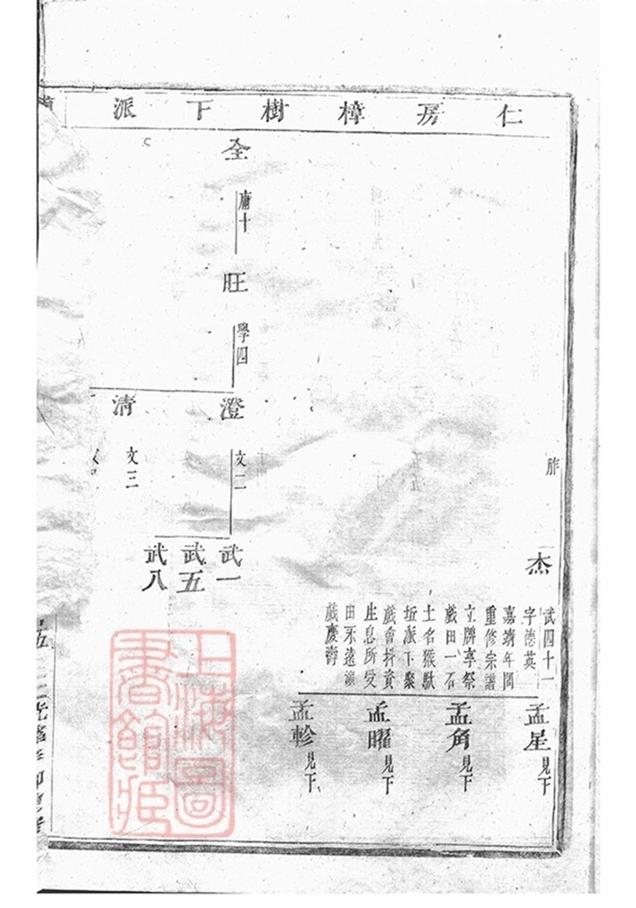 仁房樟樹下派
胙
杰
武四十一
字德英
嘉靖年間
重修宗譜
立牌享祭
戲田一石
土名猴馱
坵派下聚
戲會拵資
生息所受
田永遠演
戲慶壽
孟星見下
孟角見下
孟曜見下
孟軫見下
全
庸十
旺
學四
澄
文二
武一
武五
武八
清
文三
上海圖書館藏